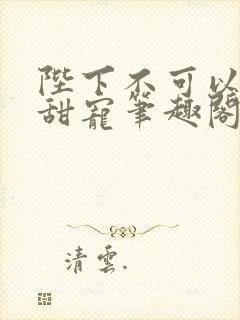 陛下不可以
甜寵筆趣閣
清雲.